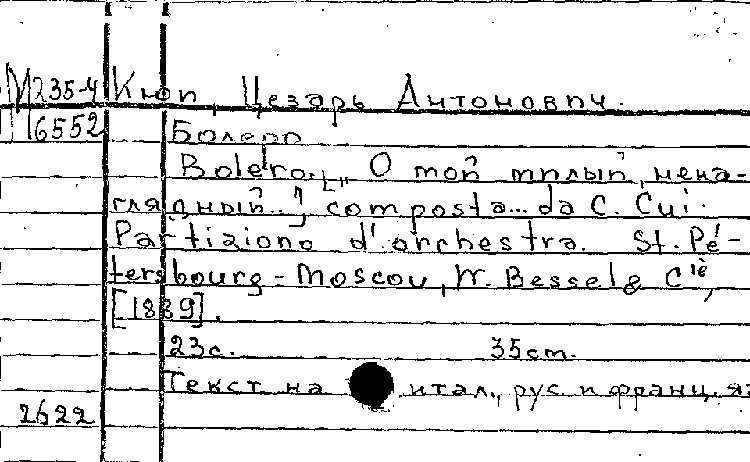 М235-4 Кюи, Цезарь Антонович.
6552 Болеро
Bolero. [„О мой милый, нена-
глядный..."] composta... da C. Cui.
Partiziono d'orchestra. St. Pé-
tersbourg - Moscou, W. Bessel & Cie,
[1889].
23с. 35cm.
Текст на итал., рус и франц. яз
2622